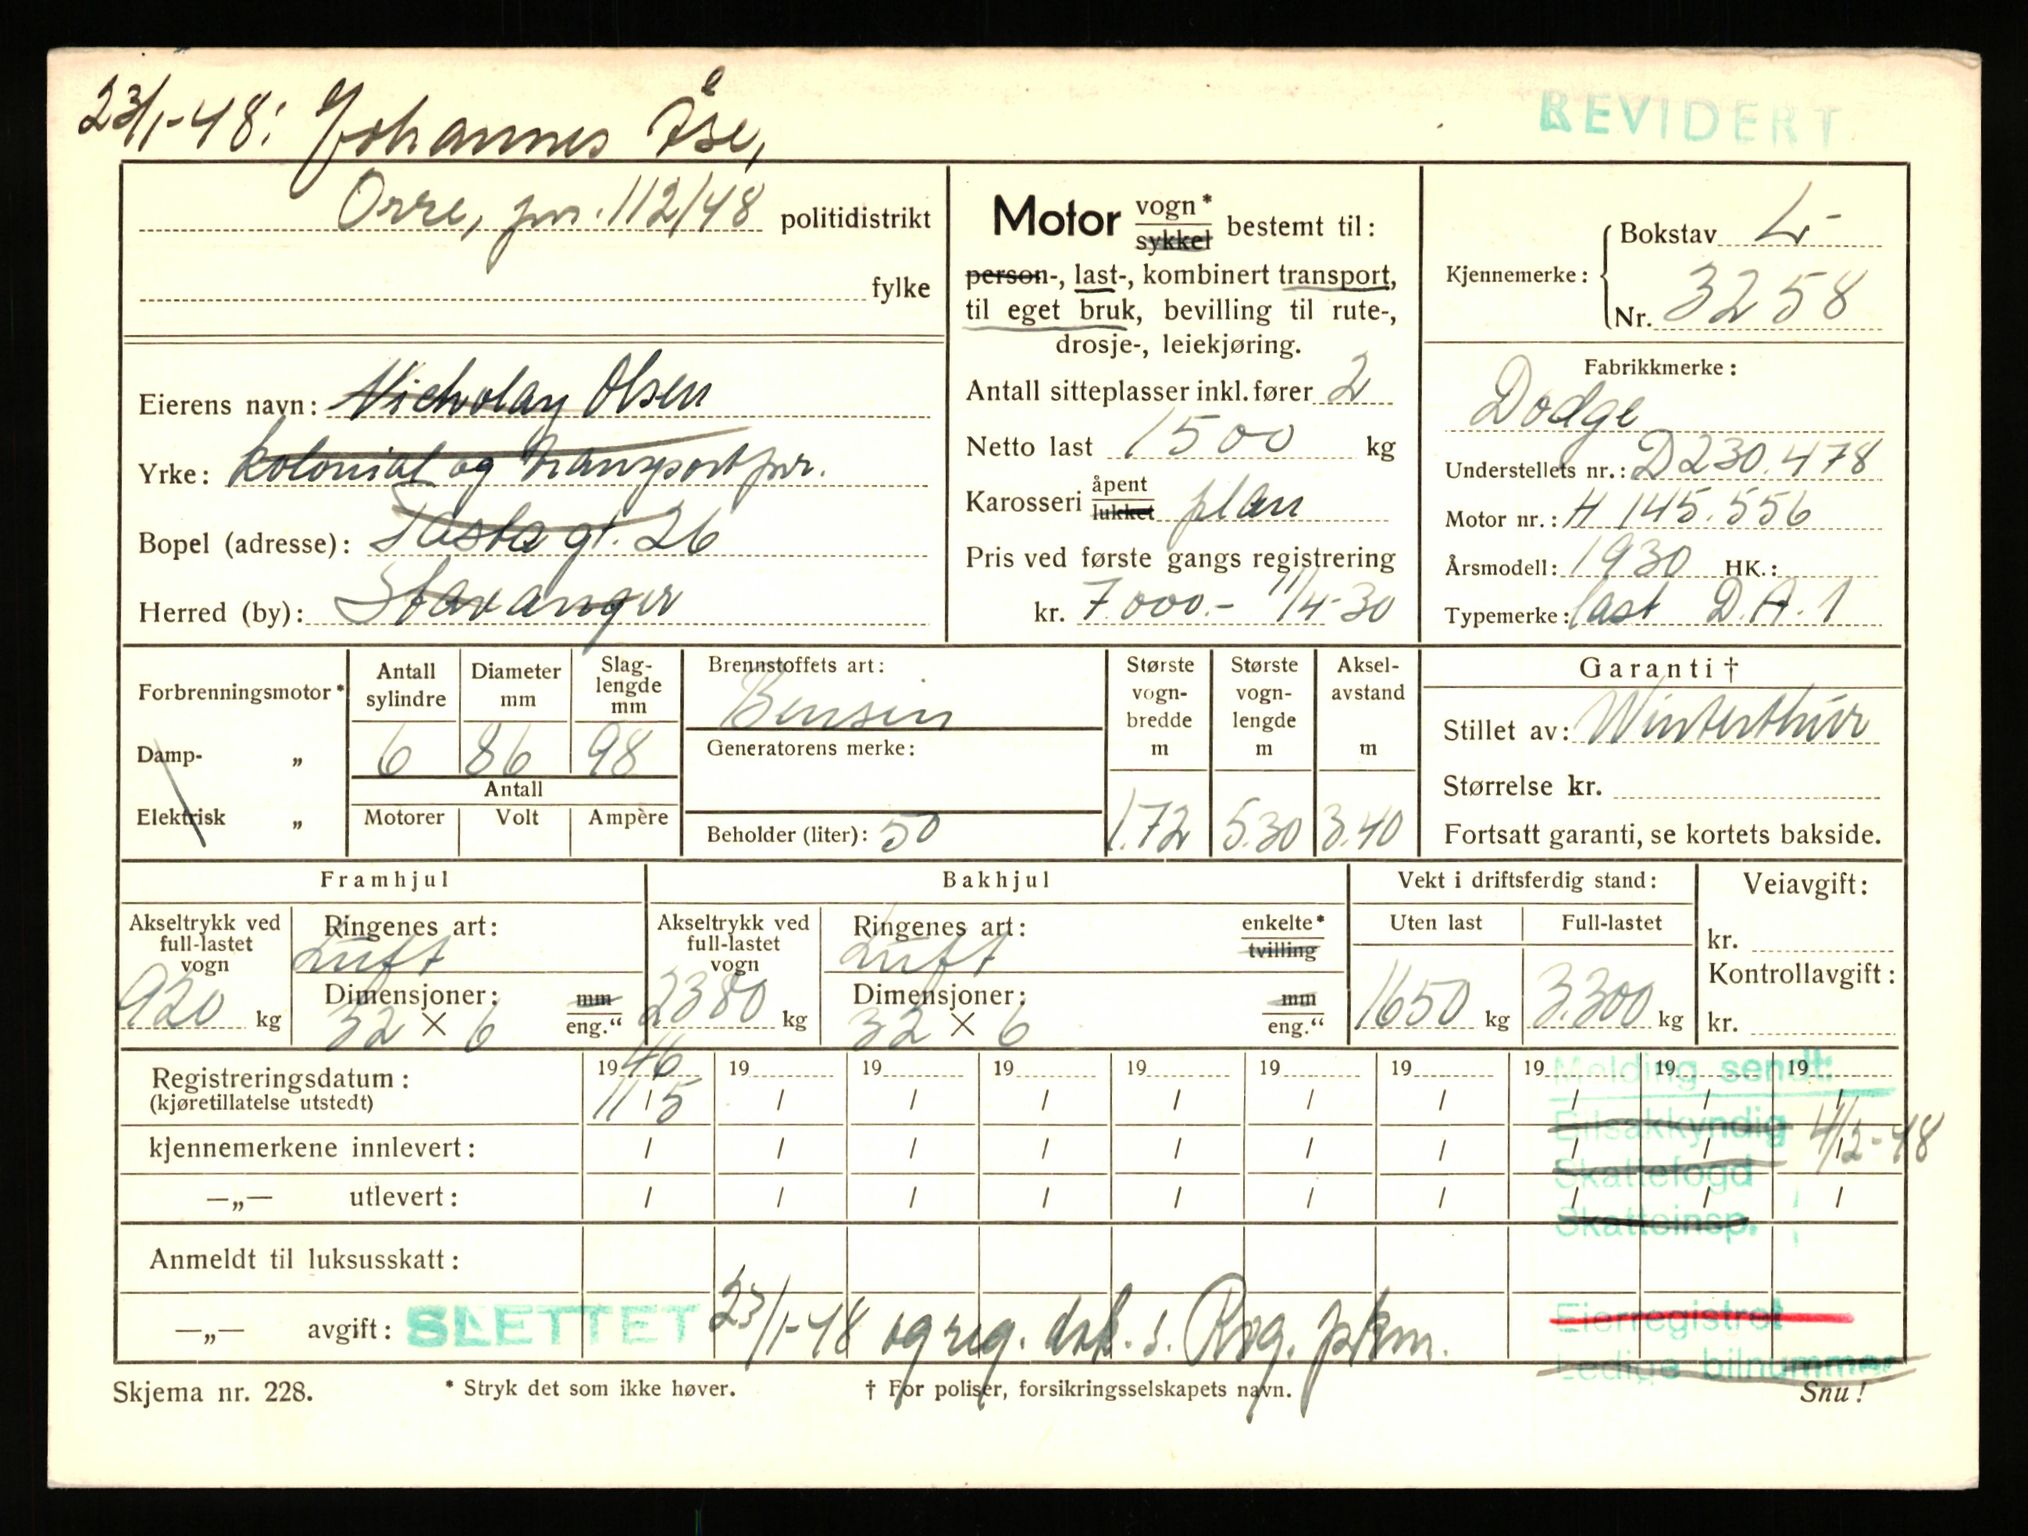 23/1-48: Johannes Åse,
REVIDERT
Orre, jnr. 112/48 politidistrikt
fylke
Eierens navn: Nicholay Olsen
Yrke: kolonial og transportforr.
Bopel (adresse): Tasta gt. 26
Herred (by): Stavanger
Motor vogn* sykkel bestemt til:
person-, last-, kombinert transport,
til eget bruk, bevilling til rute-,
drosje-, leiekjøring.
Antall sitteplasser inkl. fører 2
Netto last 1500 kg
Karosseri åpent lukket plan
Pris ved første gangs registrering
kr. 7.000.- 11/4-30
Kjennemerke: Bokstav L-
Nr. 3258
Fabrikkmerke:
Dodge
Understellets nr.: D230.478
Motor nr.: H 145.556
Årsmodell: 1930 HK.:
Typemerke: last D.A.1
Forbrenningsmotor*
Damp- „
Elektrisk „
Antall sylindre 6
Diameter mm 86
Slaglengde mm 98
Antall
Motorer Volt Ampère
Brennstoffets art:
Bensin
Generatorens merke:
Beholder (liter): 50
Største vognbredde m 1.72
Største vognlengde m 5.30
Akselavstand m 3.40
Garanti †
Stillet av: Winterthur
Størrelse kr.
Fortsatt garanti, se kortets bakside.
Framhjul
Akseltrykk ved full-lastet vogn 920 kg
Ringenes art: Luft
Dimensjoner: 32 × 6 mm eng."
Bakhjul
Akseltrykk ved full-lastet vogn 2380 kg
Ringenes art: Luft enkelte* tvilling
Dimensjoner: 32 × 6 mm eng."
Vekt i driftsferdig stand:
Uten last 1650 kg
Full-lastet 3.300 kg
Veiavgift:
kr.
Kontrollavgift:
kr.
1946 19 19 19 19 19 19 19 19 19
Registreringsdatum: 11/5 / / / / / / / / /
(kjøretillatelse utstedt)
kjennemerkene innlevert: / / / / / / / / / /
—„— utlevert: / / / / / / / / / /
Melding sendt:
Bilsakkyndig 4/2-48
Skattefogd
Skatteinsp.
Eierregistret
Ledige bilnummer
Anmeldt til luksusskatt:
—„— avgift: SLETTET 23/1-48 og reg. dsk. s. Rog. pkm.
Skjema nr. 228.
* Stryk det som ikke høver.
† For poliser, forsikringsselskapets navn.
Snu!